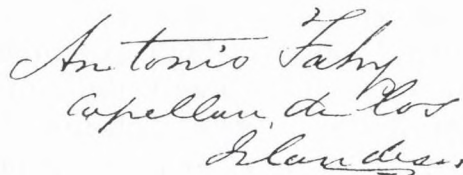 Antonio Fahy
Capellan de los
Irlandeses.